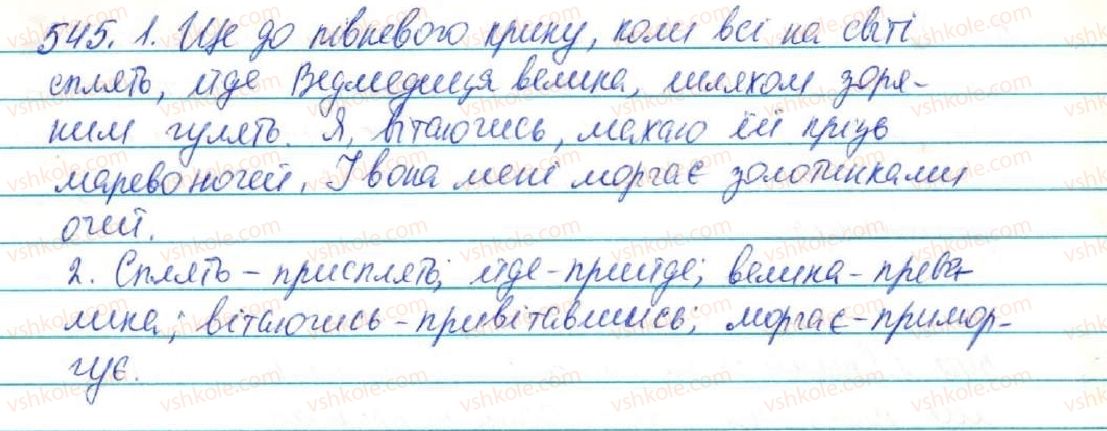 545. 1. Ще до півневого крику, коли всі на світі
сплять, йде Ведмедиця велика, шляхом зоря-
ним гулять. Я, вітаючись, махаю їй крізь
марево ночей, І вона мені моргає золотинками
очей.
2. Сплять - присплять; йде - прийде; велика - преве-
лика; вітаючись - привітавшись; моргає - примор-
гує.